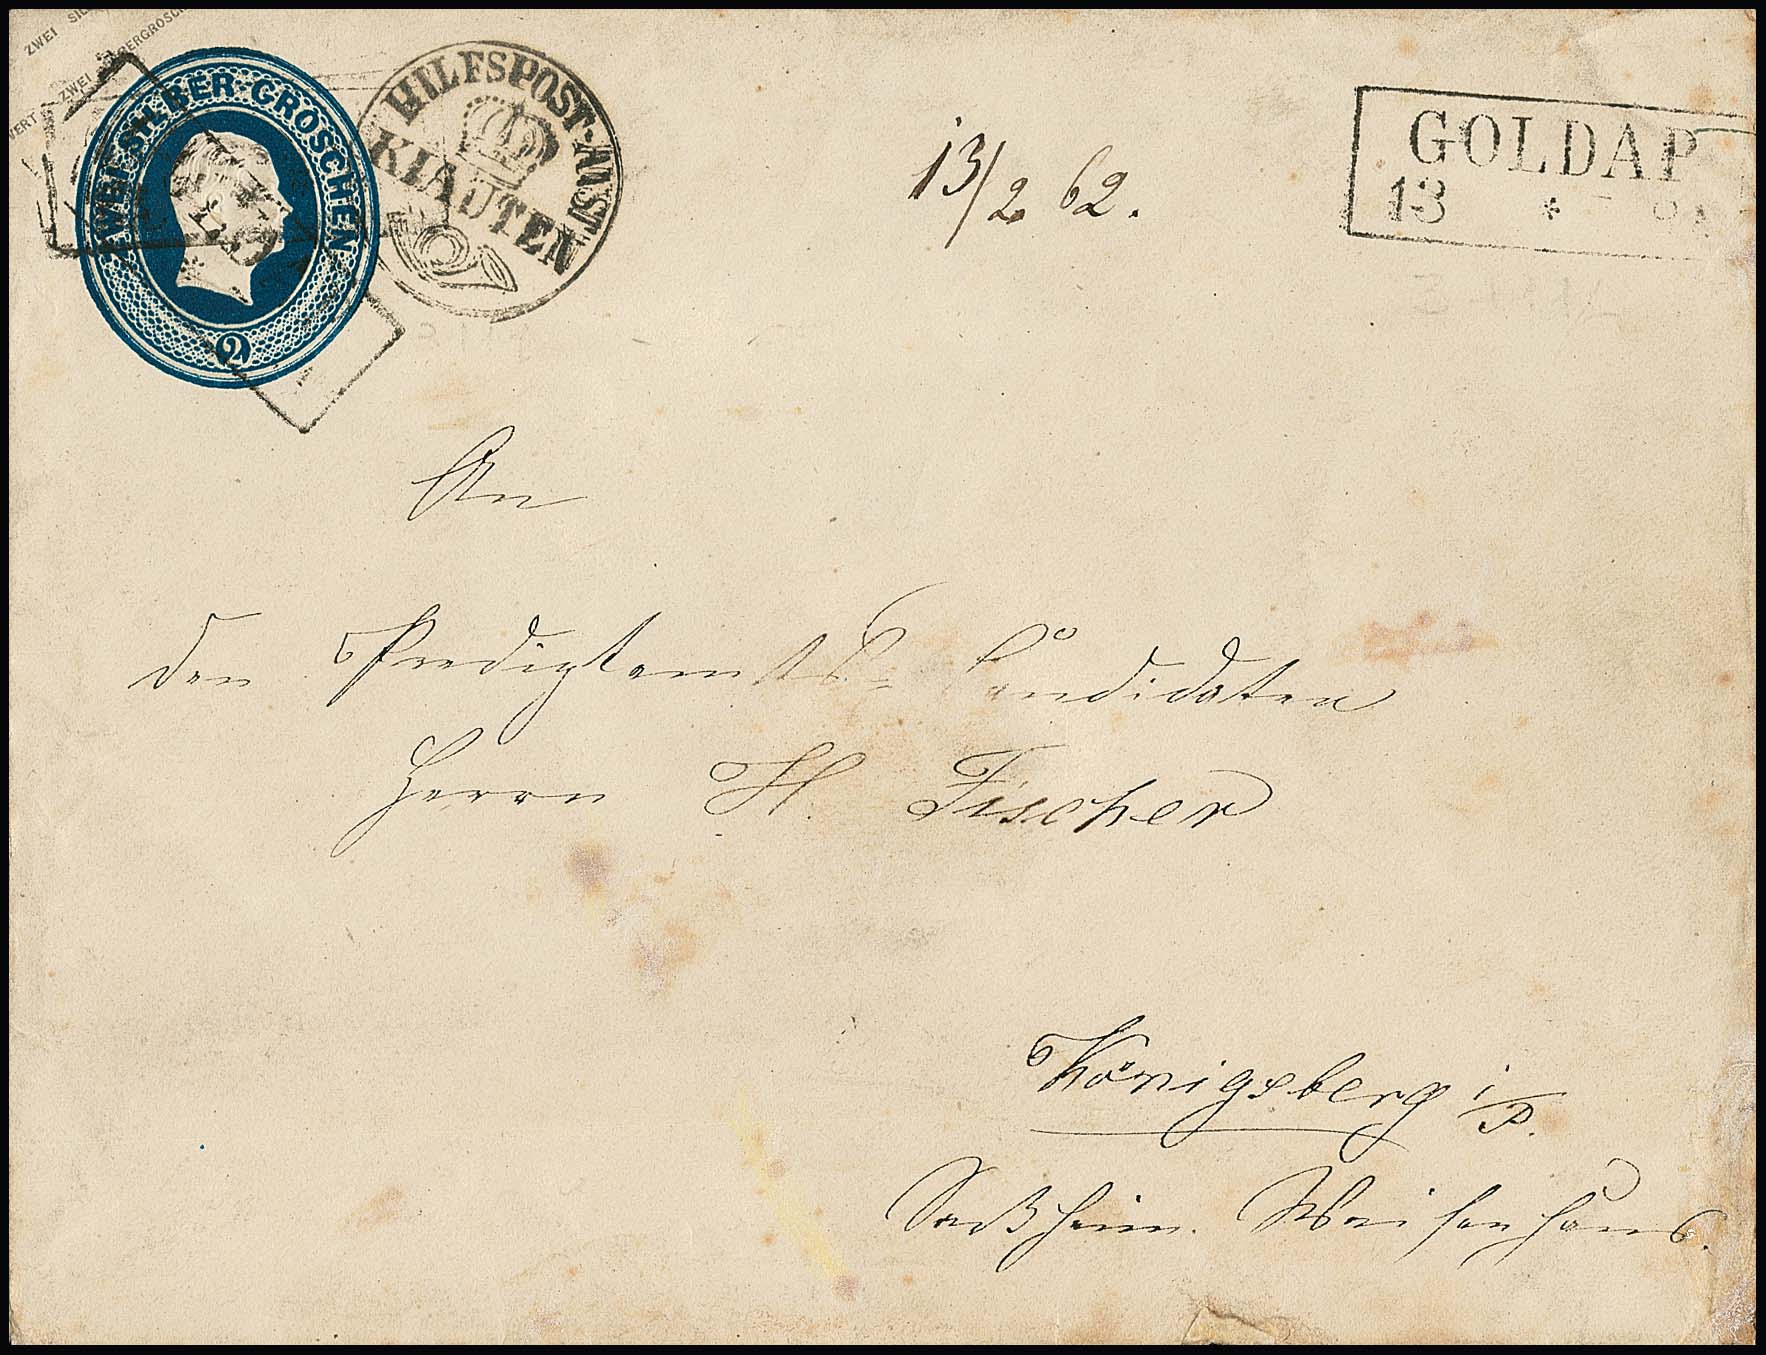 ZWEI SILBERGROSCHEN
WERT ZWEI
ZWEI SILBER-GROSCHEN
2
HILFSPOST-ANST.
KIAUTEN
13/2 62.
GOLDAP
13 * 8
An
den Predigtamts- Candidaten
Herrn H. Fischer
Königsberg i/P.
Waisenhaus.